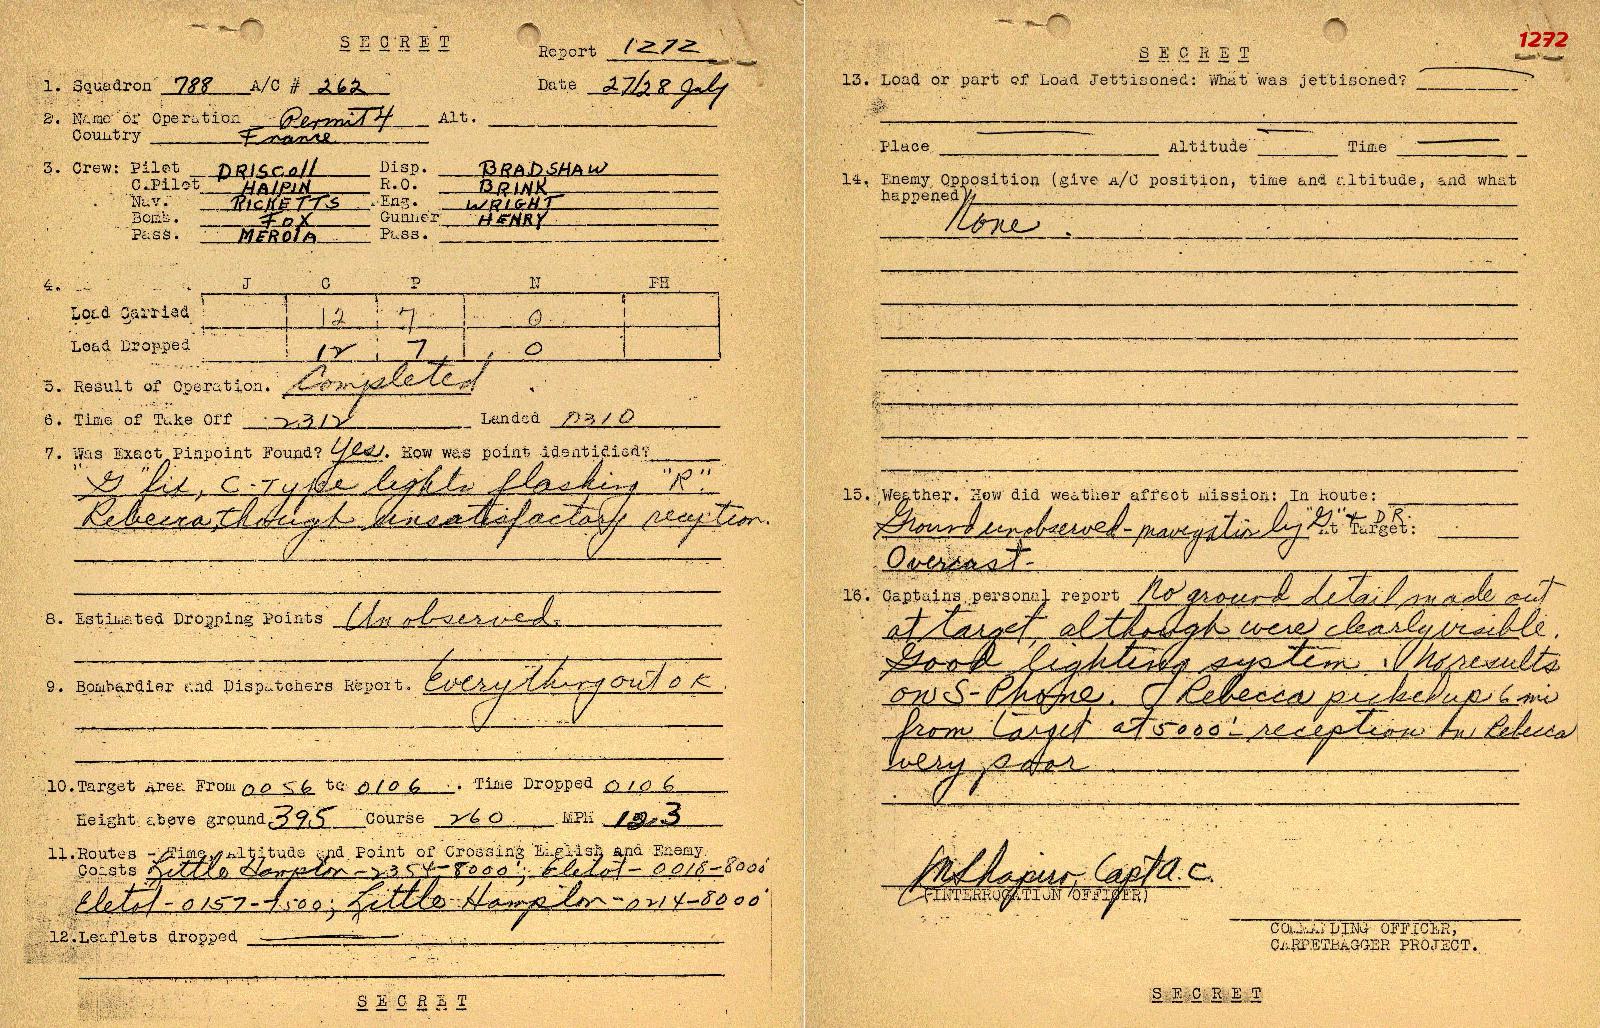 SECRET
Report 1272
1. Squadron 788 A/C # 262 Date 27/28 July
2. Name of Operation Permit 4 Alt.
Country France
3. Crew: Pilot DRISCOLL Disp. BRADSHAW
C.Pilot HALPIN R.O. BRINK
Nav. RICKETTS Eng. WRIGHT
Bomb. FOX Gunner HENRY
Pass. MEROLA Pass.
4. J C P N PH
Load Carried 12 7 0
Load Dropped 12 7 0
5. Result of Operation. Completed
6. Time of Take Off 2312 Landed 0310
7. Was Exact Pinpoint Found? Yes. How was point identidied?
"G" fix, C-Type lights flashing "R".
Rebecca, though unsatisfactory reception.
8. Estimated Dropping Points Unobserved.
9. Bombardier and Dispatchers Report. Everything out OK.
10. Target Area From 0056 to 0106. Time Dropped 0106
Height above ground 395 Course 260 MPH 123
11. Routes - Time, Altitude and Point of Crossing English and Enemy
Coasts Little Hampton - 2354 - 8000'; Eletot - 0018 - 8000'
Eletot - 0157 - 7500; Little Hampton - 0214 - 8000'
12. Leaflets dropped
SECRET
1272
SECRET
13. Load or part of Load Jettisoned: What was jettisoned?
Place Altitude Time
14. Enemy Opposition (give A/C position, time and altitude, and what
happened)
None.
15. Weather. How did weather affect mission: In Route:
Ground unobserved - navigation by "G" + D.R. At Target:
Overcast -
16. Captains personal report No ground detail made out
at target, although were clearly visible.
Good lighting system. No results
on S-Phone. Rebecca picked up 6 mi
from target at 5000' - reception on Rebecca
very poor
M Shapiro, Capt A.C.
(INTERROGATION OFFICER)
COMMANDING OFFICER,
CARPETBAGGER PROJECT.
SECRET